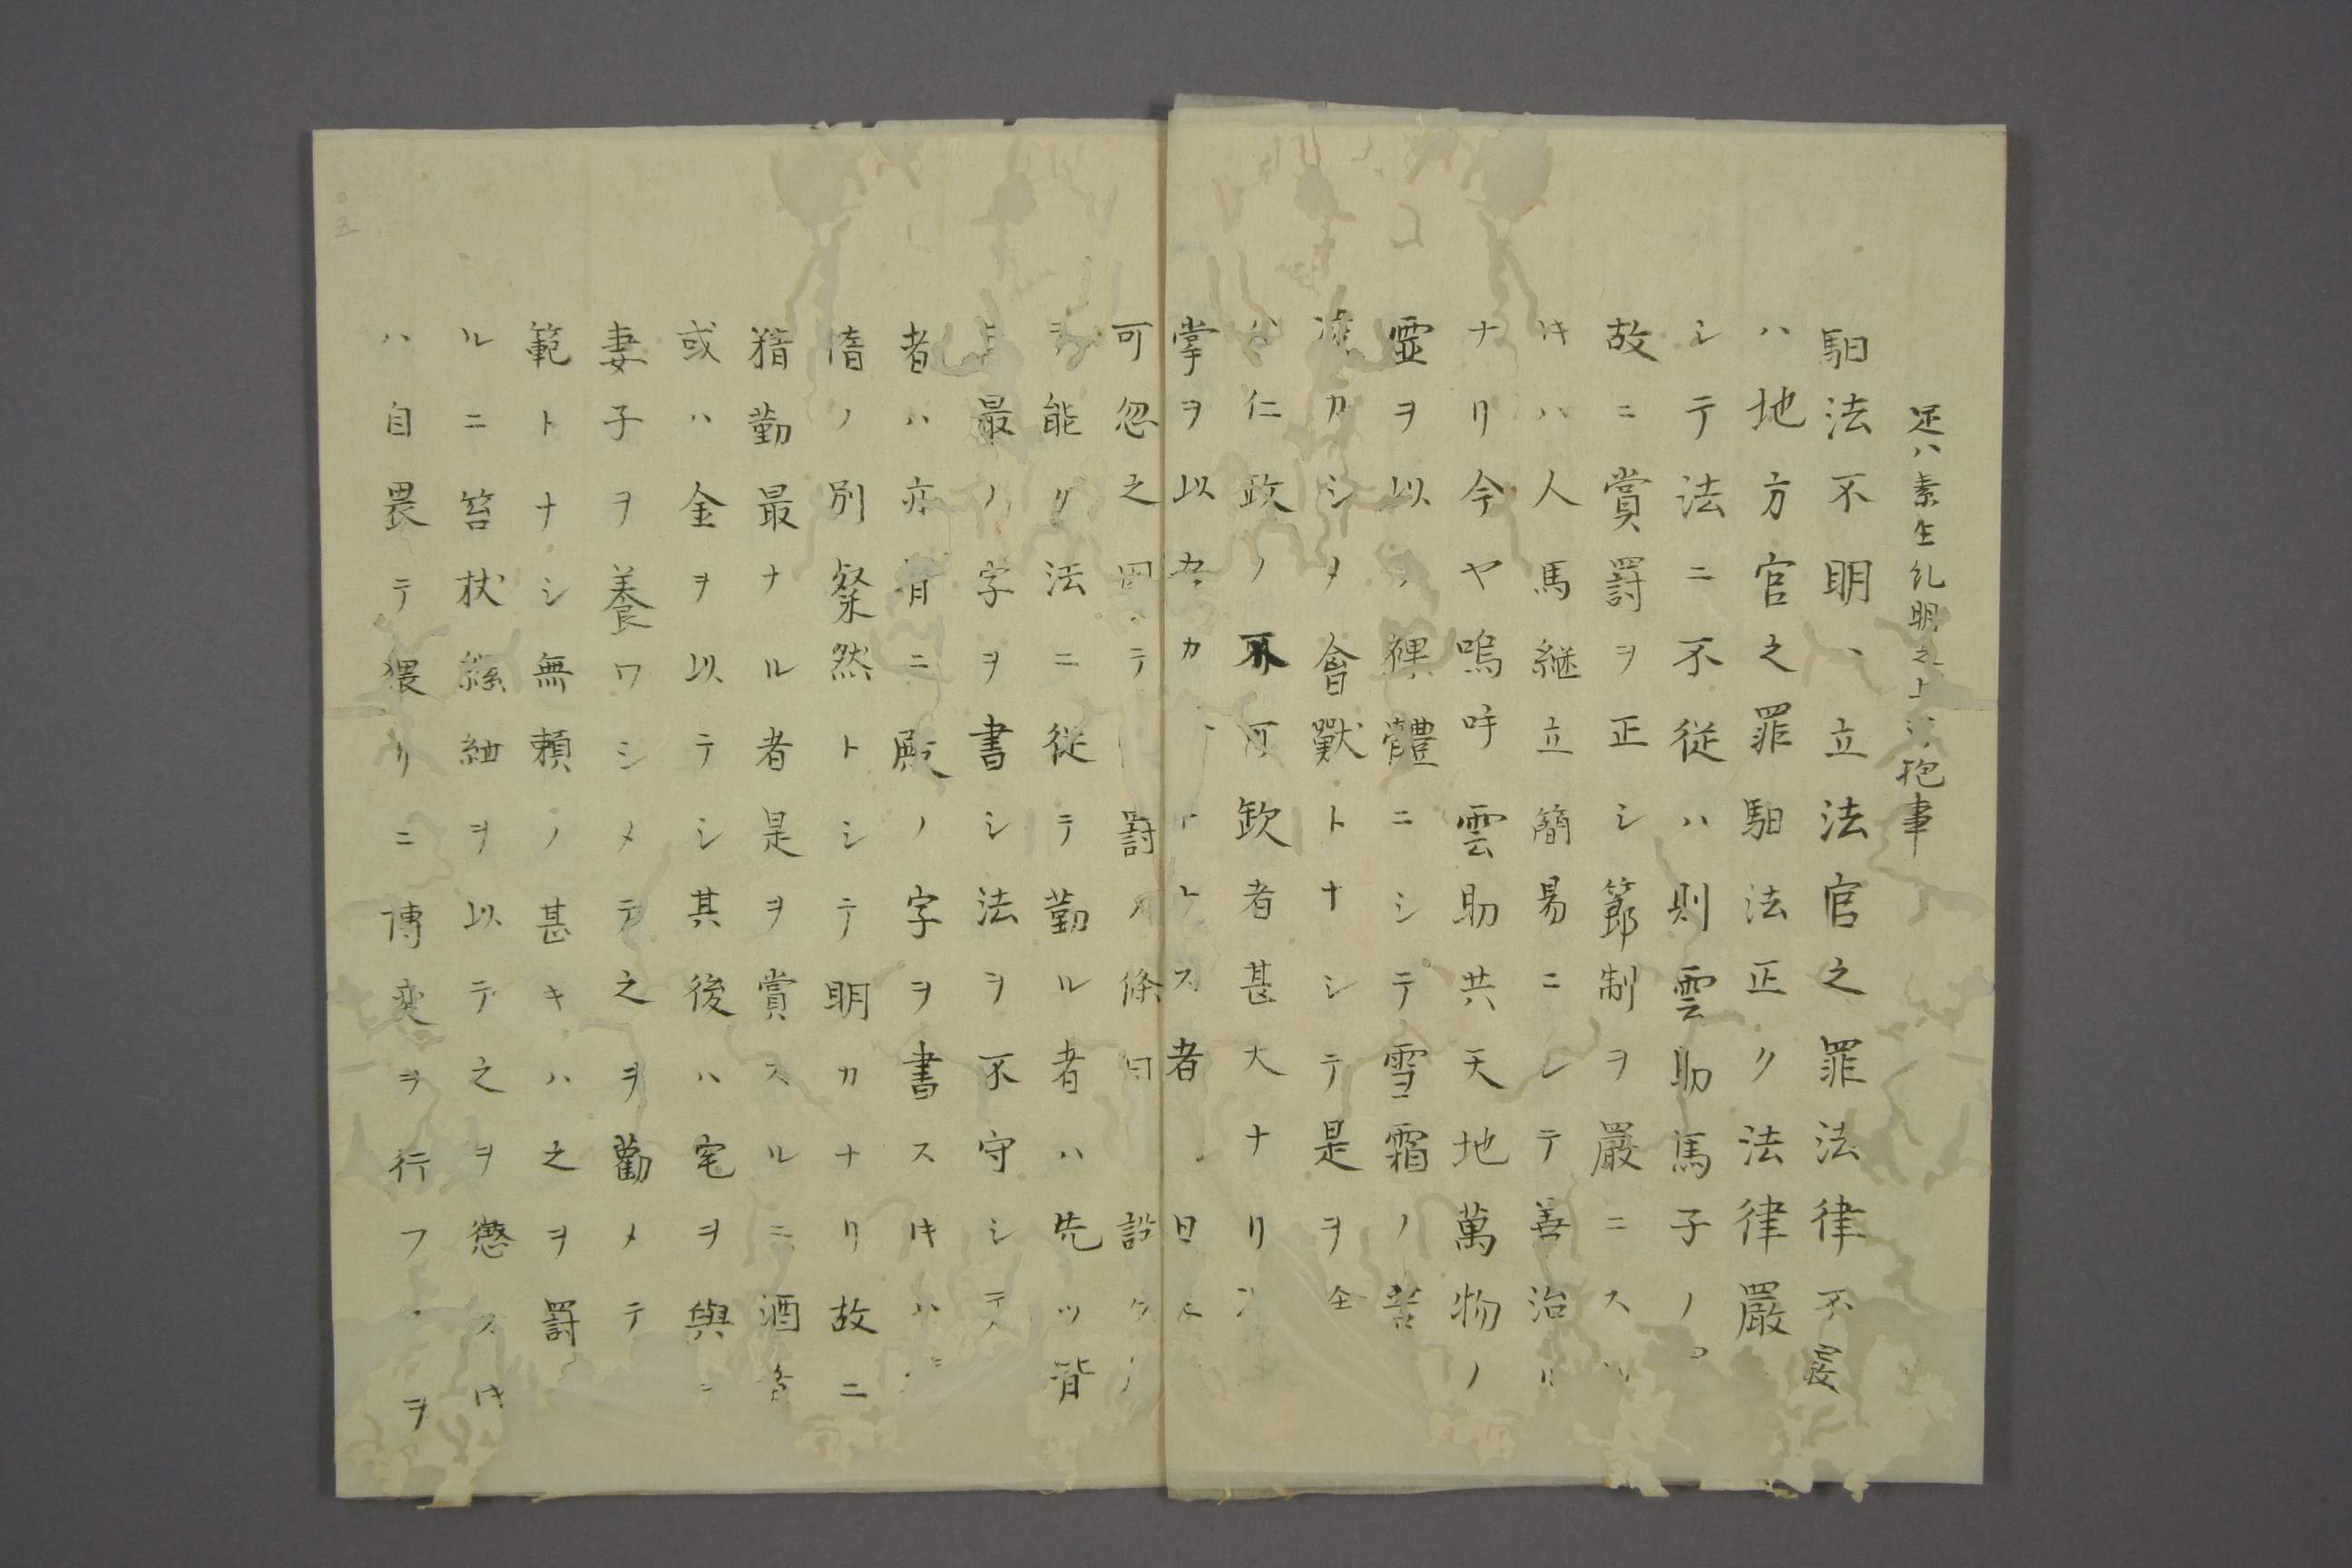 足ハ素生糺明之上 抱事
馹法不明、立法官之罪法律不
ハ地方官之罪馹法正ク法律嚴
シテ法ニ不従ハ則雲助馬子ノ
故ニ賞罰ヲ正シ節制ヲ嚴ニス
キハ人馬継立簡易ニシテ善治
ナリ今ヤ嗚呼雲助共天地萬物ノ
霊ヲ以 裸體ニシテ雪霜ノ
カシメ會獸トナシテ是ヲ全
仁政ノ 可欽者甚大ナリ
掌ヲ以 カ ス者 曰
可忽之 テ 罰 條 設ク
能ク法ニ従テ勤ル者ハ先ツ皆
最ノ字ヲ書シ法ヲ不守シテ
者ハ亦皆ニ殿ノ字ヲ書スキハ
惰ノ別粲然トシテ明カナリ故ニ
精勤最ナル者是ヲ賞スルニ酒
或ハ金ヲ以テシ其後ハ宅ヲ與
妻子ヲ養ワシメテ之ヲ勸メテ
範トナシ無頼ノ甚キハ之ヲ罰
ルニ笞杖縲紲ヲ以テ之ヲ懲スキ
ハ自畏テ猥リニ博奕ヲ行フ ヲ